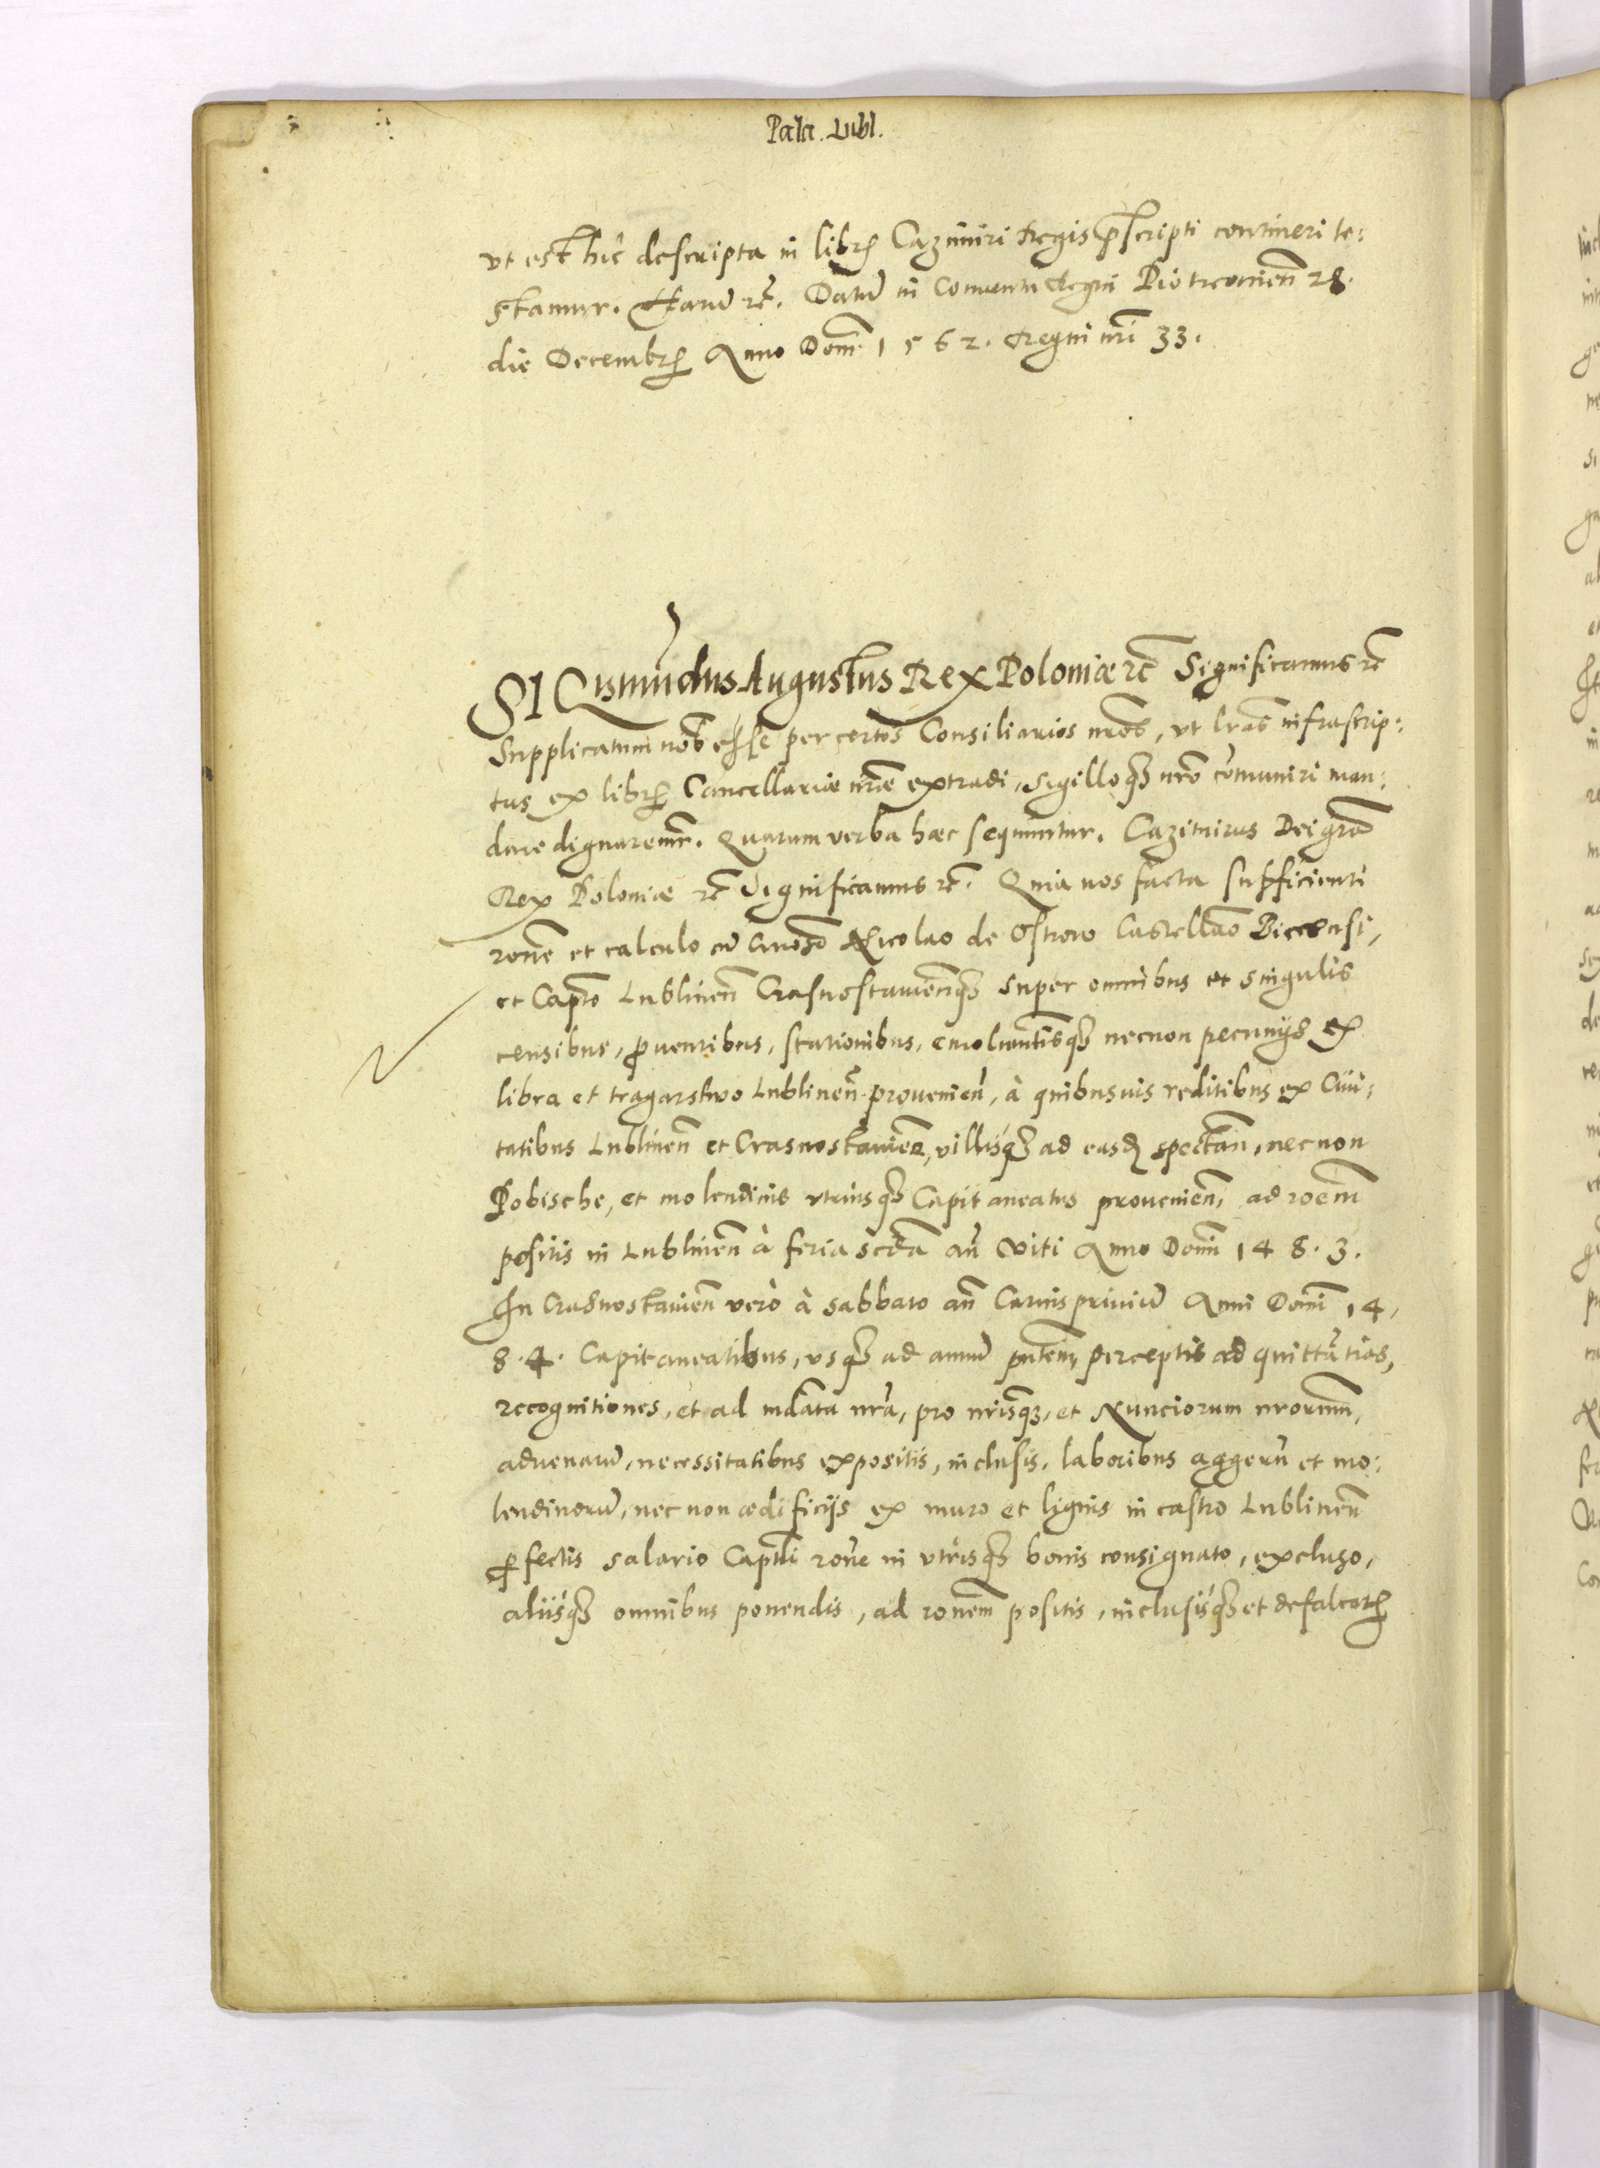 Pala. Lubl.
vt est hic descripta in libr Cazimiri Regis pscripti contineri te:
stamur. Harū rē. Datū in Conuentu Regni Piotrcouieñ 28.
die Decembr Anno Domī 1562. Regni nrī 33.
SIGismūdus Augustus Rex Poloniæ rc Significamus rc
Supplicatum nob esse per certos Consiliarios nros, vt lrās infrascrip:
tas ex libr Cancellariæ nræ extradi, sigilloq nro cōmuniri man:
dare dignaremr. Quarum verba hæc sequuntur. Cazimirus Dei grā
Rex Poloniæ rc Significamus rc. Quia nos facta sufficienti
rone et calculo cū Gnoso Nicolao de Ostrow Castellāo
et Capto Lublineñ Crasnostauieñq super omnibus et singulis
censibus, prouentibus, stationibus, emolumtisq necnon pecunijs ex
libra et tragarstwo Lublineñ prouenieñ, à quibusuis reditibus ex Ciui:
tatibus Lublineñ et Crasnostauieñ, villisq ad easd spectañ, necnon
Pobische, et molendinis vtriusq Capitaneatus prouenieñ, ad roem
positis in Lublineñ à feria scda añ Viti Anno Domī 148.3.
In Crasnostauieñ vero à sabbato añ Carnispriuiū Anni Domī 14,
8.4. Capitaneatibus, vsq ad annū pntem, perceptis ad quittātias,
recognitiones, et ad mdata nra, pro nrisq, et Nunciorum nrorum,
aduenarū, necessitatibus expositis, inclusis, laboribus aggerū et mo:
lendinorū, nec non ædificijs ex muro et lignis in castro Lublineñ
pfectis salario Captli rone in vtrisq bonis consignato, excluso,
aliisq omnibus ponendis, ad ronem positis, inclusisq et defalcat